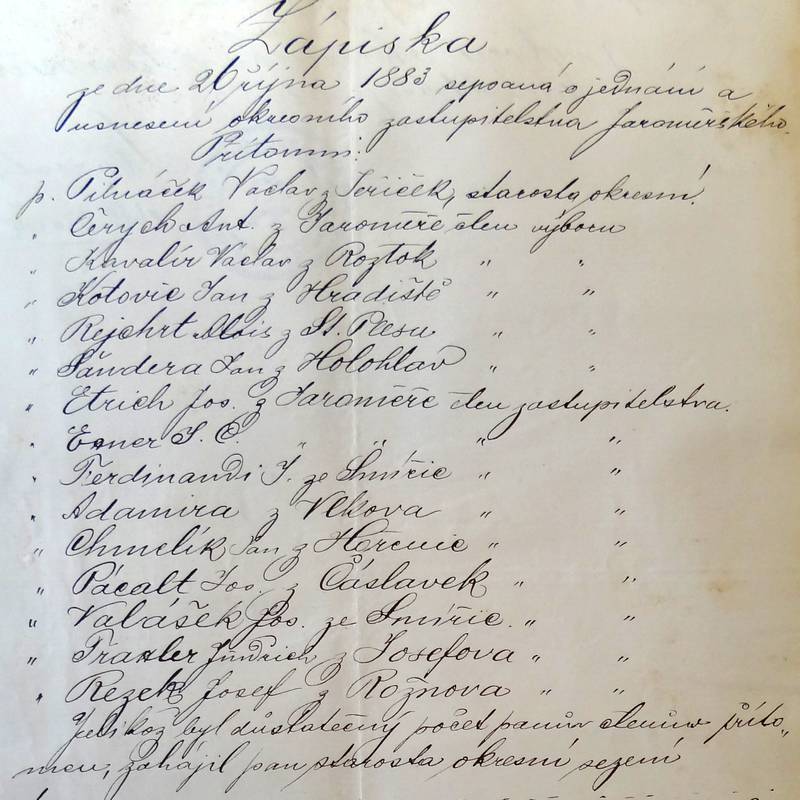 Zápiska
ze dne 26 října 1883 sepsaná o jednání a
usnesení okresního zastupitelstva Jaroměřského.
Přítomni:
p. Pilnáček Vaclav z Jeřiček, starosta okresní.
" Čerych Ant. z Jaroměře člen výboru
" Kavalír Vaclav z Roztok " "
" Kotovic Jan z Hradiště " "
" Rejchrt Alois z St. Plesu " "
" Šandera Jan z Holohlav " "
" Etrich Jos. z Jaroměře člen zastupitelstva.
" Exner J. C. " " " "
" Ferdinandi J. ze Smířic " "
" Adamira z Vlkova " "
" Chmelík Jan z Heřmnic " "
" Pácalt Jos. z Čáslavek " "
" Valášek Jos. ze Smířic. " "
" Traxler Jindřich z Josefova " "
" Rezek Josef z Rožnova " "
Jelikož byl důstatečný počet panův členův příto„
men, zahájil pan starosta okresní sezení